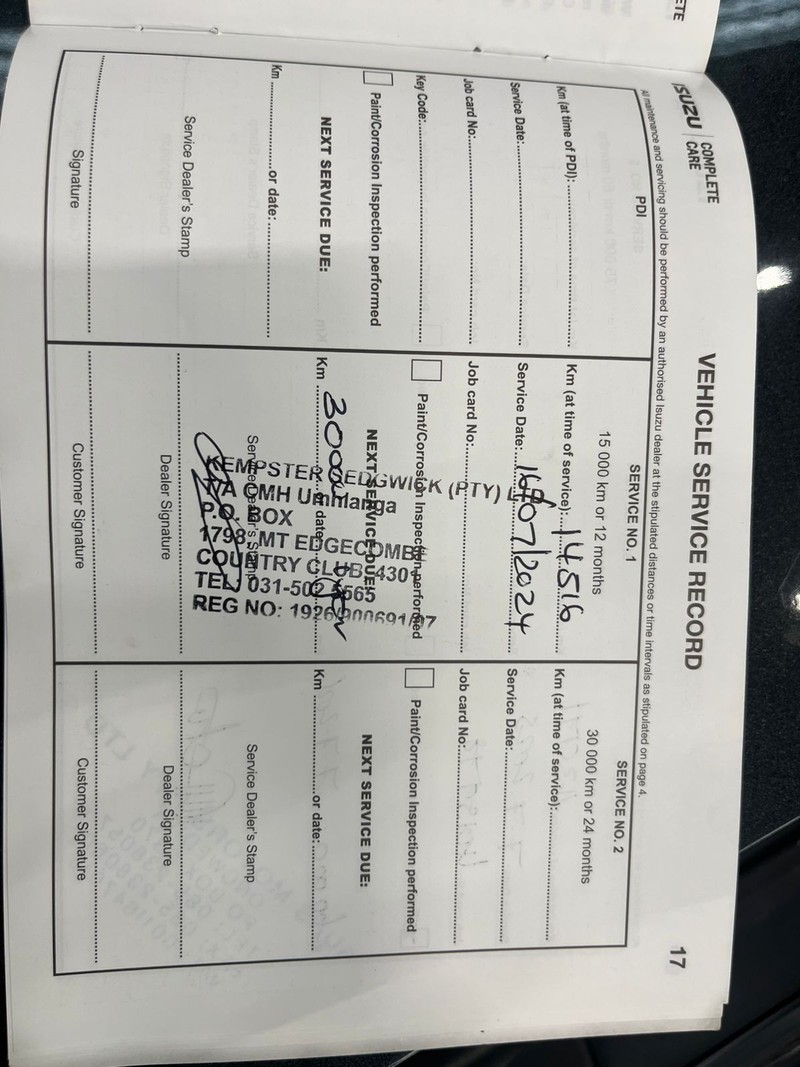 ETE
ISUZU COMPLETE CARE
VEHICLE SERVICE RECORD
17
All maintenance and servicing should be performed by an authorised Isuzu dealer at the stipulated distances or time intervals as stipulated on page 4.
PDI
Km (at time of PDI):
Service Date:
Job card No:
Key Code:
Paint/Corrosion Inspection performed
NEXT SERVICE DUE:
Km or date:
Service Dealer's Stamp
Signature
SERVICE NO. 1
15 000 km or 12 months
Km (at time of service): 14516
Service Date: 16/07/2024
Job card No:
Paint/Corrosion Inspection performed
NEXT SERVICE DUE:
Km 30000 or date:
Service Dealer's Stamp
KEMPSTER SEDGWICK (PTY)
T/A CMH Umhlanga
P.O. BOX
1798 MT EDGECOMBE
COUNTRY CLUB 4301
TEL 031-502
REG NO: 1926/000691/07
Dealer Signature
Customer Signature
SERVICE NO. 2
30 000 km or 24 months
Km (at time of service):
Service Date:
Job card No:
Paint/Corrosion Inspection performed
NEXT SERVICE DUE:
Km or date:
Service Dealer's Stamp
Dealer Signature
Customer Signature